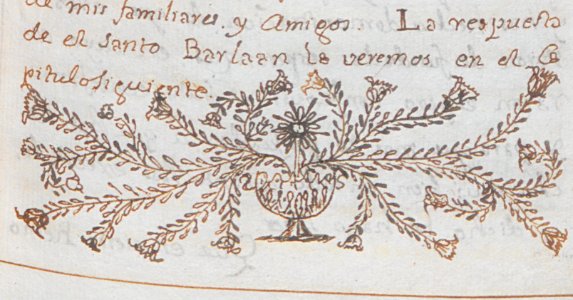 de mis familiares. y Amigos. La respuesta
de el santo Barlaan la veremos en el Ca
pitulo siguiente.